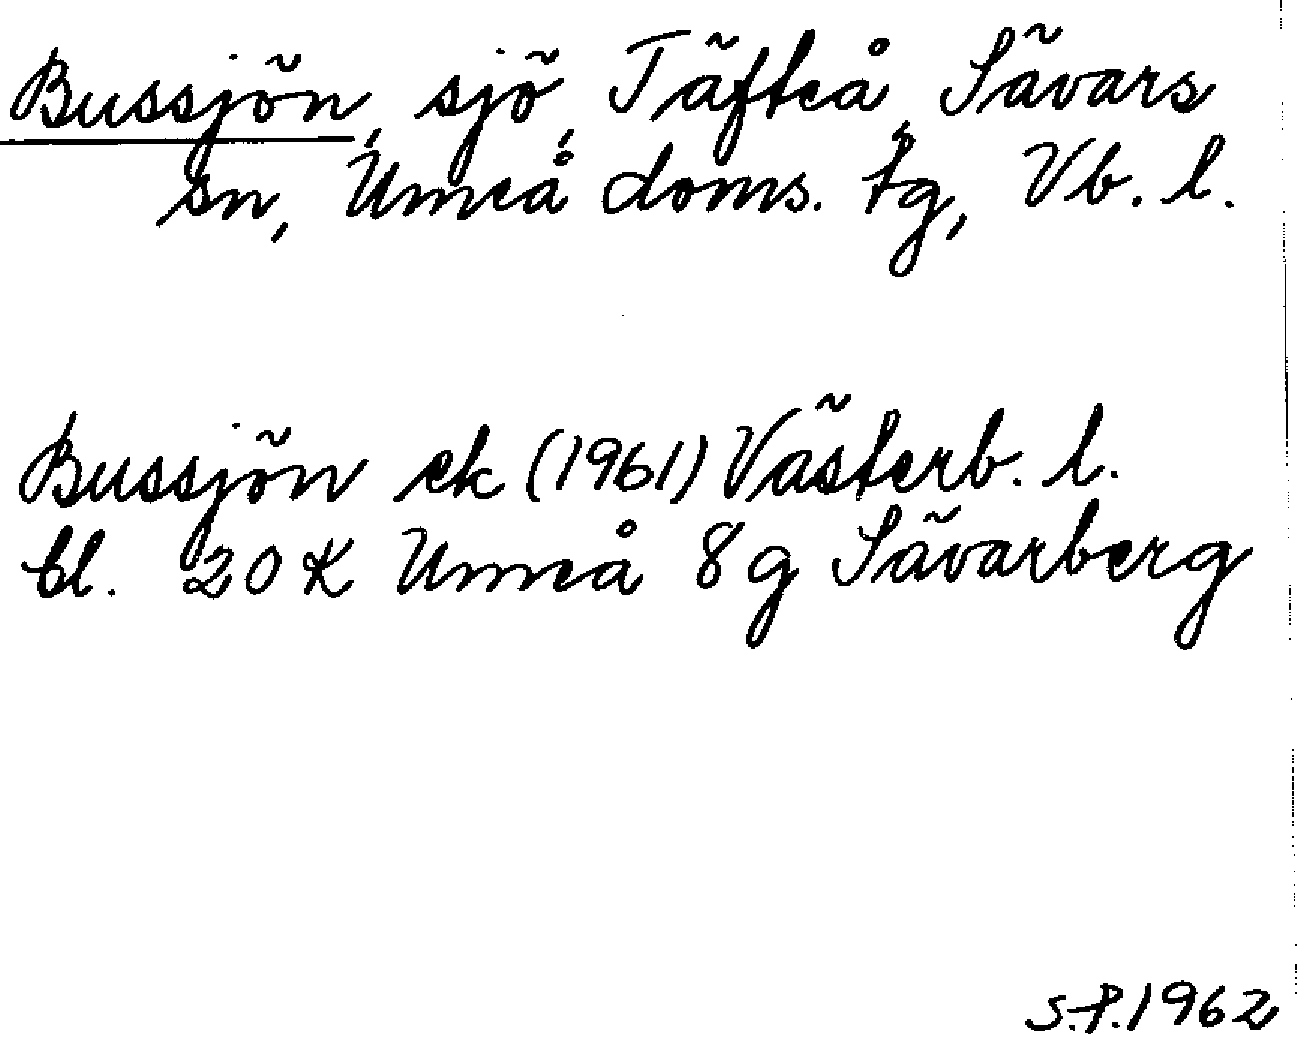 Bussjön, sjö, Täfteå, Sävars
sn, Umeå doms. tg, Vb. l.
Bussjön ek (1961) Västerb. l.
bl. 20 K Umeå 8 g Sävarberg
S.P. 1962